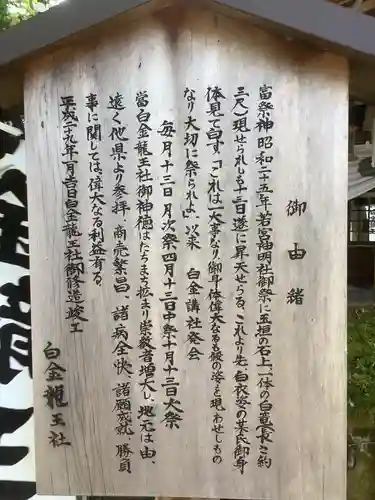 御由緒
當祭神昭和二十五年若宮神明社御祭に玉垣の石上、一体の白竜(長さ約
三尺)現せられしも十三日遂に昇天せらる。これより先、白衣姿の某氏御身
体見て白す「これは一大事なり、御身体偉大なるも仮の姿を現わせしもの
なり大切に祭られよ」以来 白金講社発会
毎月十三日月次祭四月十三日中祭十月十三日大祭
當白金龍王社御神徳はたちまち拡まり崇敬者増大し、地元は由、
遠く他県より参拝、商売繁昌、諸病全快、諸願成就、勝負
事に関しては、偉大なる利益有る。
平成二十九年一月吉日白金龍王社御修造竣工
白金龍王社